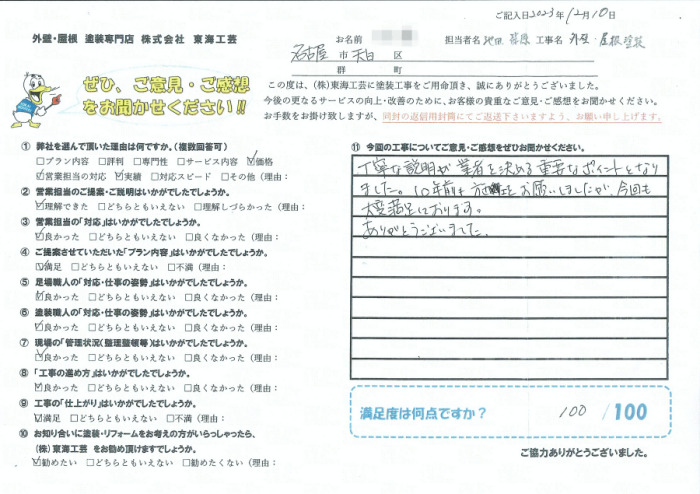 ご記入日2023年12月10日
外壁・屋根 塗装専門店 株式会社 東海工芸
お名前
担当者名 工事名 外壁・屋根塗装
名古屋 市 天白 区
郡 町
ぜひ、ご意見・ご感想
をお聞かせください!!
この度は、(株)東海工芸に塗装工事をご用命頂き、誠にありがとうございました。
今後の更なるサービスの向上・改善のために、お客様の貴重なご意見・ご感想をお聞かせください。
お手数をお掛け致しますが、同封の返信用封筒にてご返送下さいますよう、お願い申し上げます。
① 弊社を選んで頂いた理由は何ですか。(複数回答可)
□プラン内容 □評判 □専門性 □サービス内容 ☑価格
☑営業担当の対応 ☑実績 □対応スピード □その他(理由:
② 営業担当のご提案・ご説明はいかがでしたでしょうか。
☑理解できた □どちらともいえない □理解しづらかった(理由:
③ 営業担当の「対応」はいかがでしたでしょうか。
☑良かった □どちらともいえない □良くなかった(理由:
④ ご提案させていただいた「プラン内容」はいかがでしたでしょうか。
☑満足 □どちらともいえない □不満(理由:
⑤ 足場職人の「対応・仕事の姿勢」はいかがでしたでしょうか。
☑良かった □どちらともいえない □良くなかった(理由:
⑥ 塗装職人の「対応・仕事の姿勢」はいかがでしたでしょうか。
☑良かった □どちらともいえない □良くなかった(理由:
⑦ 現場の「管理状況(整理整頓等)はいかがでしたでしょうか。
☑良かった □どちらともいえない □良くなかった(理由:
⑧ 「工事の進め方」はいかがでしたでしょうか。
☑良かった □どちらともいえない □良くなかった(理由:
⑨ 工事の「仕上がり」はいかがでしたでしょうか。
☑満足 □どちらともいえない □不満(理由:
⑩ お知り合いに塗装・リフォームをお考えの方がいらっしゃったら、
(株)東海工芸 をお勧め頂けますでしょうか。
☑勧めたい □どちらともいえない □勧めたくない(理由:
⑪ 今回の工事についてご意見・ご感想をぜひお聞かせください。
丁寧な説明が業者を決める重要なポイントとなり
ました。10年前もお願いしましたが、今回も
大変満足しております。
ありがとうございました。
満足度は何点ですか? 100 /100
ご協力ありがとうございました。